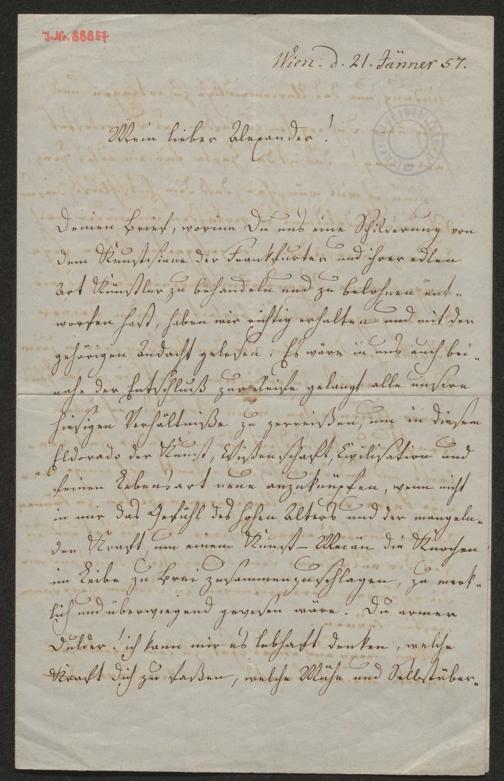 J. Nr. 88857
Wien. d. 21. Jänner 57.
Mein lieber Alexander!
Deinen Brief, worinn Du uns eine Schilderung von
dem Kunstsinne der Frankfurter und ihrer edlen
Art Künstler zu behandeln und zu belohnen ent-
worfen hast, haben wir richtig erhalten und mit der
gehörigen Andacht gelesen. Es wäre in uns auch bei-
nahe der Entschluß zur Reife gelangt alle unsere
hiesigen Verhältniße zu zerreißen, um in diesem
Eldorado der Kunst, Wissenschaft, Civilisation und
feinen Lebensart neue anzuknüpfen, wenn nicht
in mir das Gefühl des hohen Alters und der mangeln-
den Kraft, um einem Kunst-Mecän die Knochen
im Leibe zu Brei zusammenzuschlagen, zu merk-
lich und überwiegend gewesen wäre. Du armer
Dulder! ich kann mir es lebhaft denken, welche
Kraft Dich zu faßen, welche Mühe und Selbstüber-